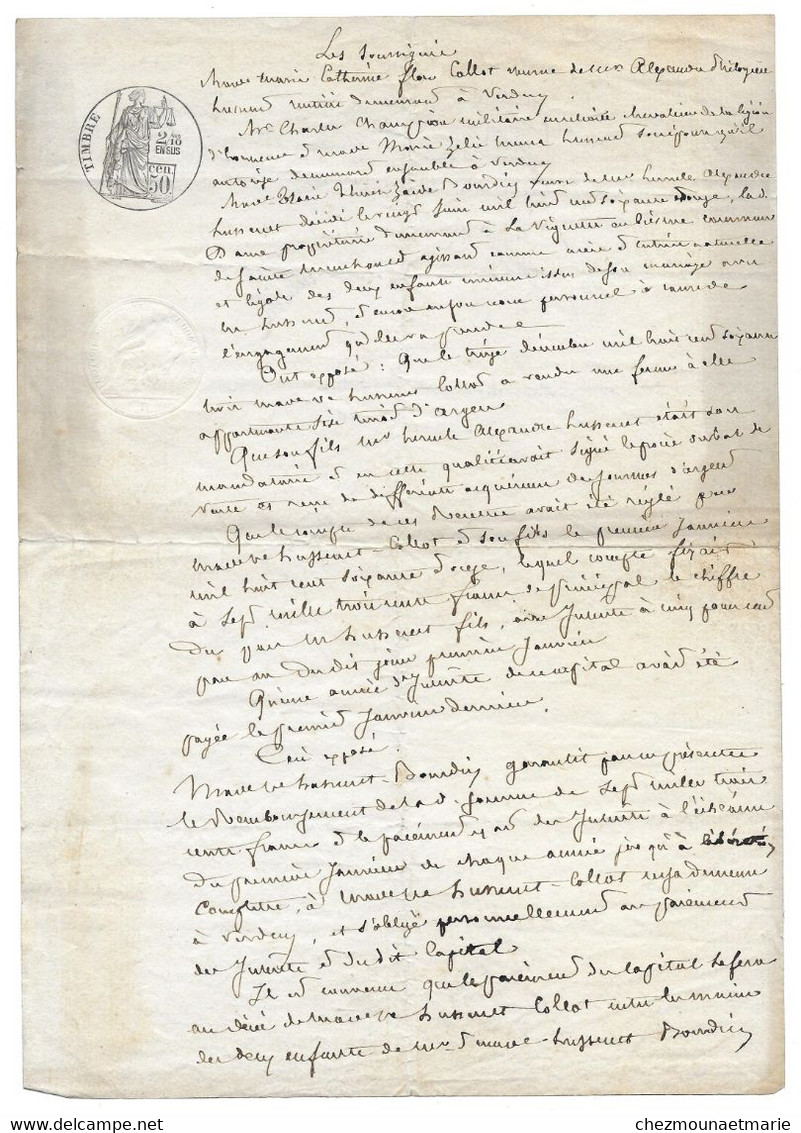 Les soussignés
Made Marie Catherine Flore Collot veuve de Mr Alexandre
Hussenet rentière demeurant à Verdun
Mr Charles Champion militaire en retraite chevalier de la légion
d'honneur et made Marie Zélie Hussenet son épouse qu'il
autorise demeurant ensemble à Verdun
TIMBRE
2/10 EN SUS
50 cen.
Made Bourdin veuve de Mr Hercule Alexandre
Hussenet décédé le vingt juin mil huit cent soixante douze, la d.
Dame propriétaire demeurant à La Vignette commune
de Sainte Menehould agissant comme mère et tutrice naturelle
et légale des deux enfants mineurs issus de son mariage avec
Mr Hussenet, et encore en son nom personnel à cause de
l'engagement qu'elle va prendre
Ont exposé : Que le treize décembre mil huit cent soixante
trois made Ve Hussenet Collot a vendu une ferme à elle
appartenante sise
Que son fils Mr Hercule Alexandre Hussenet était son
mandataire et en cette qualité avait signé le procès verbal de
vente et reçu de différents acquéreurs des sommes d'argent
Que le compte de ces recettes avait été réglé par
made Ve Hussenet-Collot et son fils le premier Janvier
mil huit cent soixante et onze, lequel compte fixait
à sept mille trois cents francs de principal le chiffre
du par Mr Hussenet fils, avec Intérêts à cinq pour cent
par an du dit jour premier Janvier
Qu'une année d'Intérêts de ce capital avait été
payée le premier Janvier dernier.
Ceci exposé.
Made Ve Hussenet-Bourdin garantit par ces présentes
le Remboursement de la d. somme de sept mille trois
cents francs et le paiement des Intérêts à l'échéance
du premier Janvier de chaque année jusqu'à libération
complette, à Made Ve Hussenet-Collot demeurant
à Verdun, et s'oblige personnellement au paiement
des Intérêts et du dit Capital
Il est convenu que le paiement du capital se fera
au décès de Made Ve Hussenet Collot entre les mains
des deux enfants de Mr et made Hussenet Bourdin
chezmounaetmarie